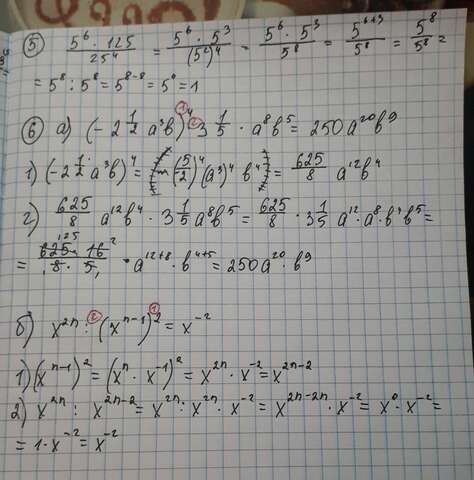 ⑤ 5⁶ · 125 / 25⁴ = 5⁶ · 5³ / (5²)⁴ = 5⁶ · 5³ / 5⁸ = 5⁶⁺³ / 5⁸ = 5⁸ / 5⁸ =
= 5⁸ : 5⁸ = 5⁸⁻⁸ = 5⁰ = 1
⑥ а) (- 2 1/2 a³b)⁴ · 3 1/5 · a⁸b⁵ = 250a²⁰b⁹
1) (-2 1/2 a³b)⁴ = (5/2)⁴ (a³)⁴ b⁴ = 625/8 a¹²b⁴
2) 625/8 a¹²b⁴ · 3 1/5 a⁸b⁵ = 625/8 · 3 1/5 a¹² · a⁸ · b⁴ b⁵ =
= 625 · 16 / 8 · 5 · a¹²⁺⁸ · b⁴⁺⁵ = 250a²⁰ · b⁹
б) x²ⁿ : (xⁿ⁻¹)² = x⁻²
1) (xⁿ⁻¹)² = (xⁿ · x⁻¹)² = x²ⁿ · x⁻² = x²ⁿ⁻²
2) x²ⁿ : x²ⁿ⁻² = x²ⁿ : x²ⁿ · x⁻² = x²ⁿ⁻²ⁿ · x⁻² = x⁰ · x⁻² =
= 1 · x⁻² = x⁻²